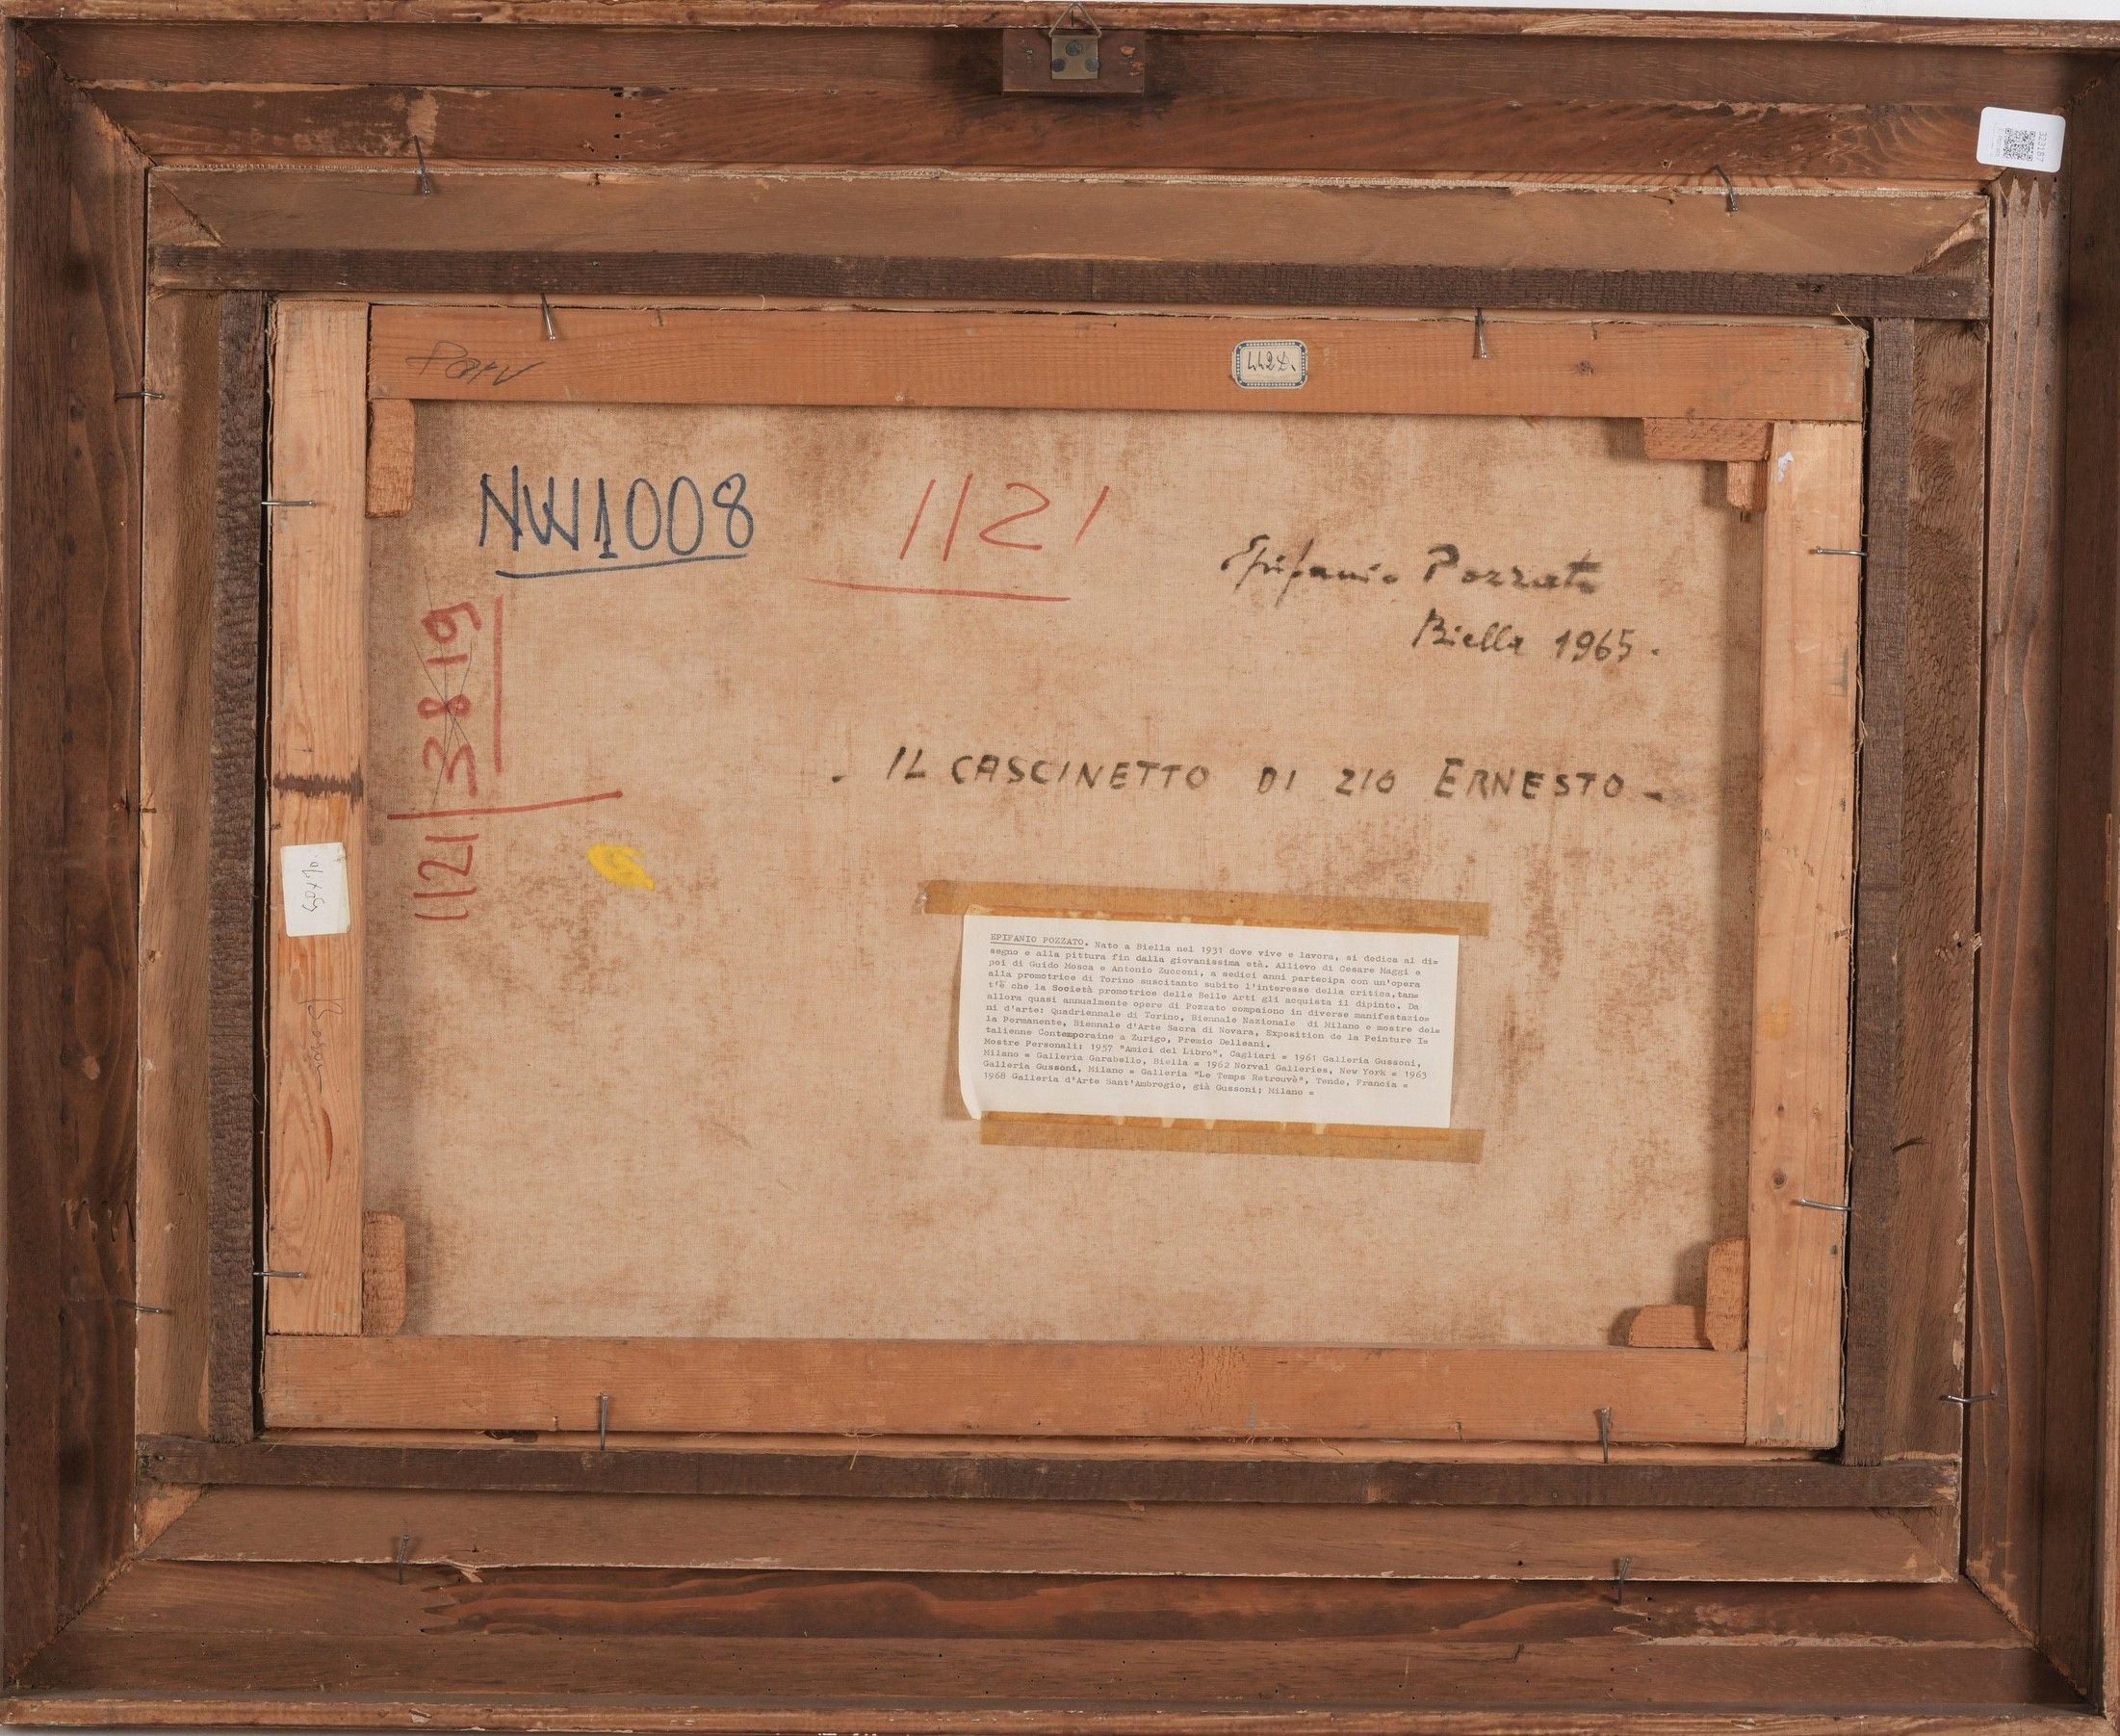 323187
442D.
NW1008
1121
Epifanio Pozzato
Biella 1965.
3819
1121
. IL CASCINETTO DI ZIO ERNESTO -
50x70
EPIFANIO POZZATO. Nato a Biella nel 1931 dove vive e lavora, si dedica al di=
segno e alla pittura fin dalla giovanissima età. Allievo di Cesare Maggi e
poi di Guido Mosca e Antonio Zucconi, a sedici anni partecipa con un'opera
alla promotrice di Torino suscitanto subito l'interesse della critica,tan=
t'è che la Società promotrice delle Belle Arti gli acquista il dipinto. Da
allora quasi annualmente opere di Pozzato compaiono in diverse manifestazio=
ni d'arte: Quadriennale di Torino, Biennale Nazionale di Milano e mostre del=
la Permanente, Biennale d'Arte Sacra di Novara, Exposition de la Peinture I=
talienne Contemporaine a Zurigo, Premio Delleani.
Mostre Personali: 1957 "Amici del Libro", Cagliari = 1961 Galleria Gussoni,
Milano = Galleria Garabello, Biella = 1962 Norval Galleries, New York = 1963
Galleria Gussoni, Milano = Galleria "Le Temps Retrouvè", Tende, Francia =
1968 Galleria d'Arte Sant'Ambrogio, già Gussoni; Milano =